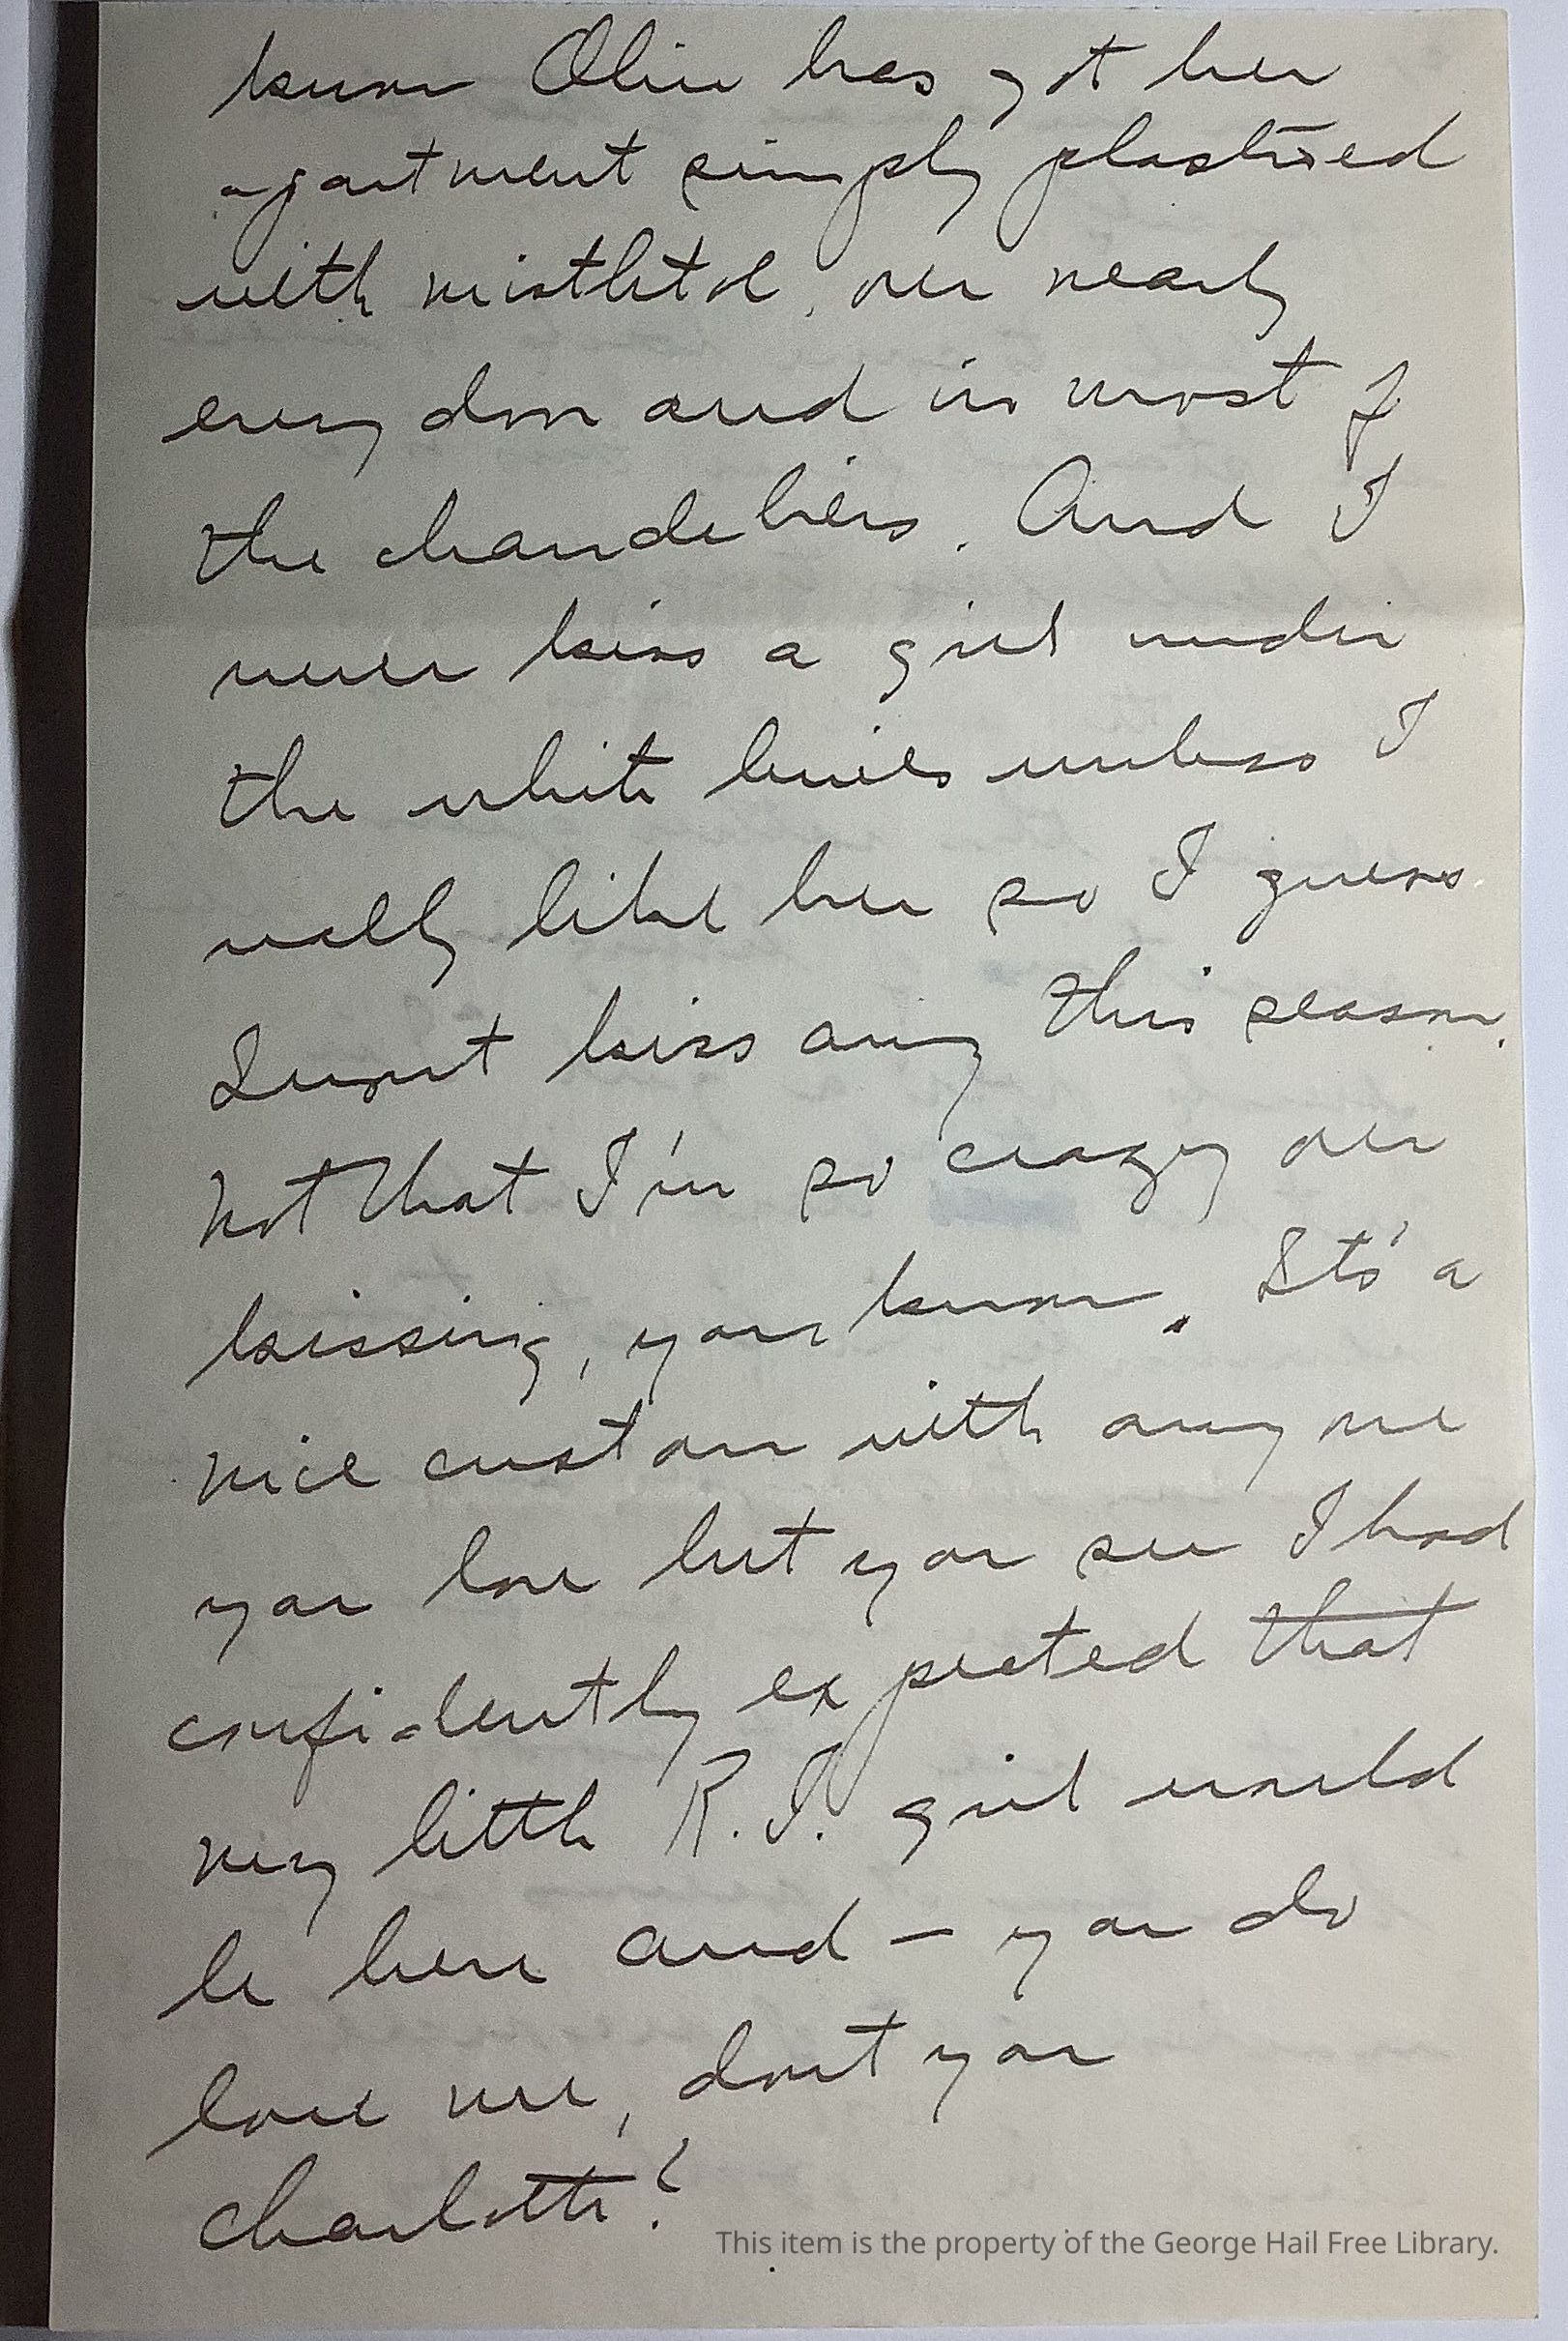 know Olive has got her
apartment simply plastered
with mistletoe, over nearly
every door and in most of
the chandeliers. And I
never kiss a girl under
the white berries unless I
really like her so I guess
I won't kiss any this season.
Not that I'm so crazy over
kissing, you know. Its' a
nice custom with any one
you love but you see I had
confidently expected that
my little R.I. girl would
be here and — you do
love me, don't you
Charlotte?
This item is the property of the George Hail Free Library.